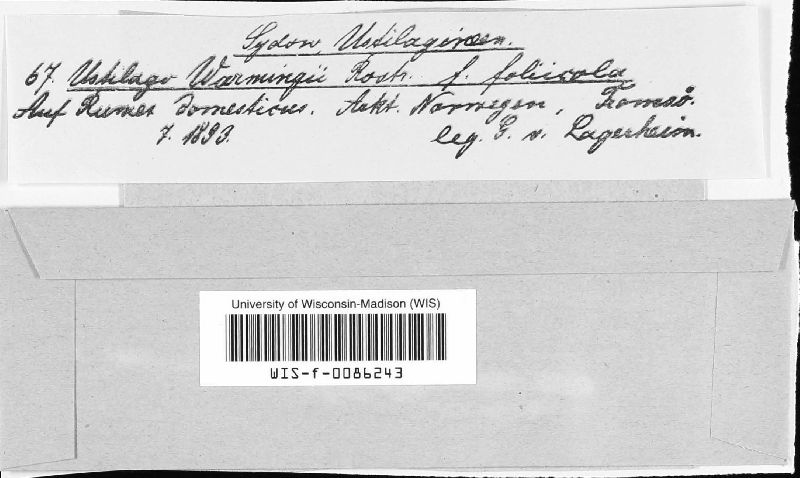 Sydow, Ustilagineen.
67. Ustilago Warmingii Rostr. f. foliicola
Auf Rumex domesticus. Arkt. Norwegen, Tromsø.
7. 1893. leg. G. v. Lagerheim.
University of Wisconsin-Madison (WIS)
WIS-f-0086243